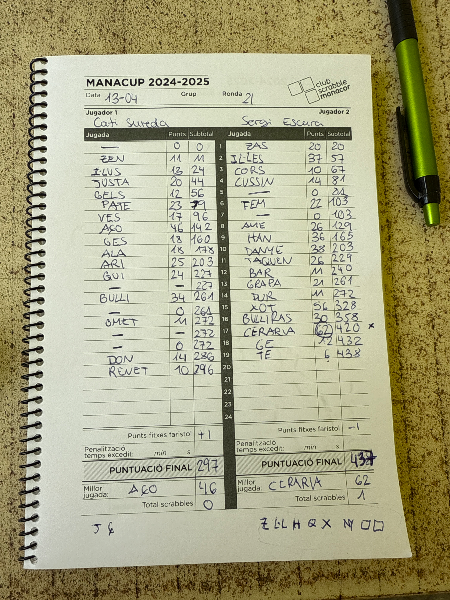 MANACUP 2024-2025
club scrabble manacor
Data 13-04 Grup Ronda 21
Jugador 1 Jugador 2
Cati Sureda Sergi Escura
Jugada Punts Subtotal Jugada Punts Subtotal
— 0 0 1 ZAS 20 20
ZEN 11 11 2 ILLES 37 57
ILUS 13 24 3 CORS 10 67
JUSTA 20 44 4 CUSSIN 14 81
GELS 12 56 5 — 0
PATE 23 79 6 FEM 22 103
VES 17 96 7 — 0 103
AGO 46 142 8 AME 26 129
GES 18 160 9 HAN 36 165
ALA 18 178 10 DANYE 38 203
ARI 25 203 11 TAGUEN 26 229
GUI 24 227 12 BAR 11 240
— 227 13 GRAPA 21 261
BULLI 34 261 14 DUR 11 272
— 0 261 15 XOT 56 328
OMET 11 272 16 BULLIRAS 30 358
— 272 17 CERARIA 62 420 ×
— 0 272 18 GE 12 432
DON 14 286 19 TE 6 438
RENET 10 296 20
21
22
23
24
Punts fitxes faristol +1 Punts fitxes faristol -1
Penalització temps excedit: min s Penalització temps excedit: min s
PUNTUACIÓ FINAL 297 PUNTUACIÓ FINAL 437
Millor jugada: AGO 46 Millor jugada: CERARIA 62
Total scrabbles 0 Total scrabbles 1